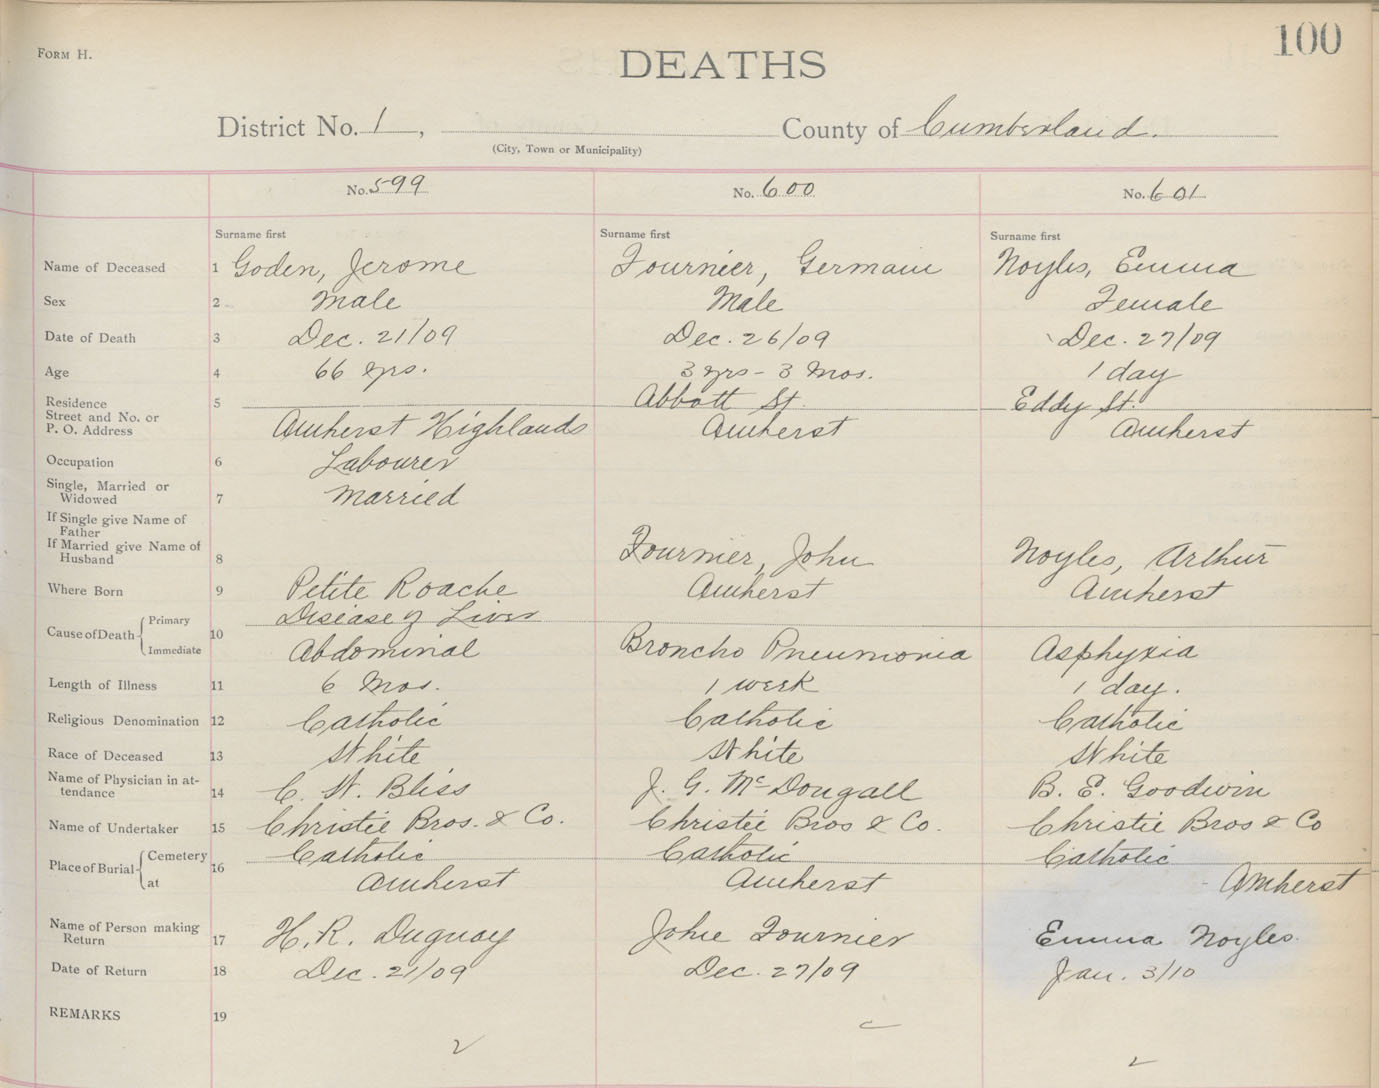 FORM H.
100
DEATHS
District No. 1, County of Cumberland.
(City, Town or Municipality)
No. 599 No. 600 No. 601
Surname first Surname first Surname first
Name of Deceased 1 Goden, Jerome Fournier, Germain Noyles, Emma
Sex 2 Male Male Female
Date of Death 3 Dec. 21/09 Dec. 26/09 Dec. 27/09
Age 4 66 yrs. 3 yrs - 3 Mos. 1 day
Residence 5 Abbott St. Eddy St.
Street and No. or
P. O. Address Amherst Highlands Amherst Amherst
Occupation 6 Labourer
Single, Married or
Widowed 7 Married
If Single give Name of
Father
If Married give Name of
Husband 8 Fournier, John Noyles, Arthur
Where Born 9 Petite Roache Amherst Amherst
Cause of Death Primary Disease of Liver
10
Immediate Abdominal Broncho Pneumonia Asphyxia
Length of Illness 11 6 Mos. 1 week 1 day.
Religious Denomination 12 Catholic Catholic Catholic
Race of Deceased 13 White White White
Name of Physician in at-
tendance 14 C. W. Bliss J. G. McDougall B. E. Goodwin
Name of Undertaker 15 Christie Bros. & Co. Christie Bros & Co. Christie Bros & Co
Place of Burial Cemetery 16 Catholic Catholic Catholic
at Amherst Amherst Amherst
Name of Person making
Return 17 H. R. Duguay John Fournier Emma Noyles.
Date of Return 18 Dec. 21/09 Dec. 27/09 Jan. 3/10
REMARKS 19